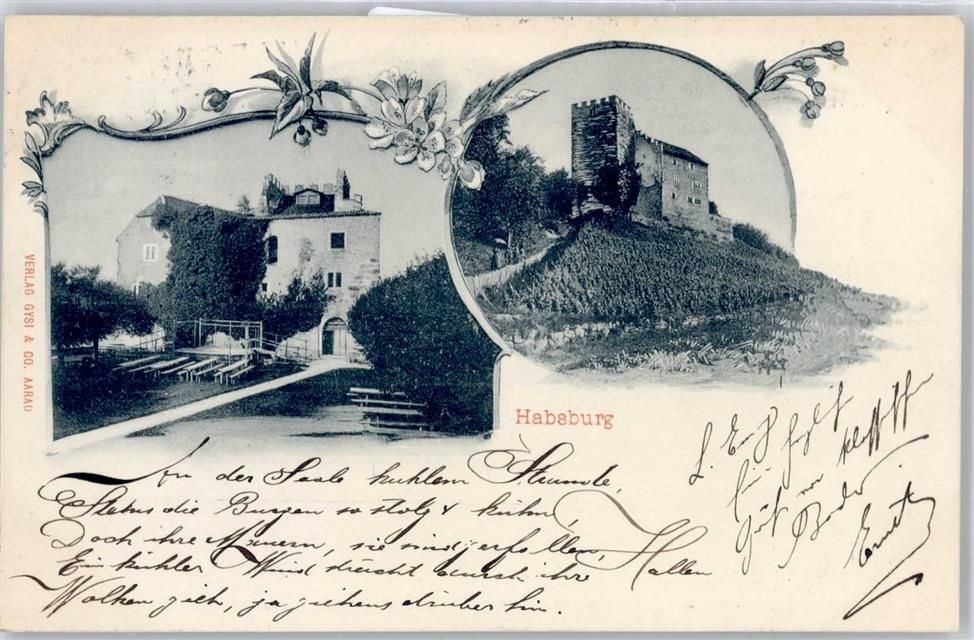 VERLAG GYSI & CO. AARAU
Habsburg
An der Saale kuhlem Strande,
Stehn die Burgen so stolz & kühn,
Doch ihre Mauern, sie sind zerfallen,
Ein kühler Wind streicht durch ihre Hallen
Wolken zieh, ja ziehens drüber hin.
L.
für
Gut von